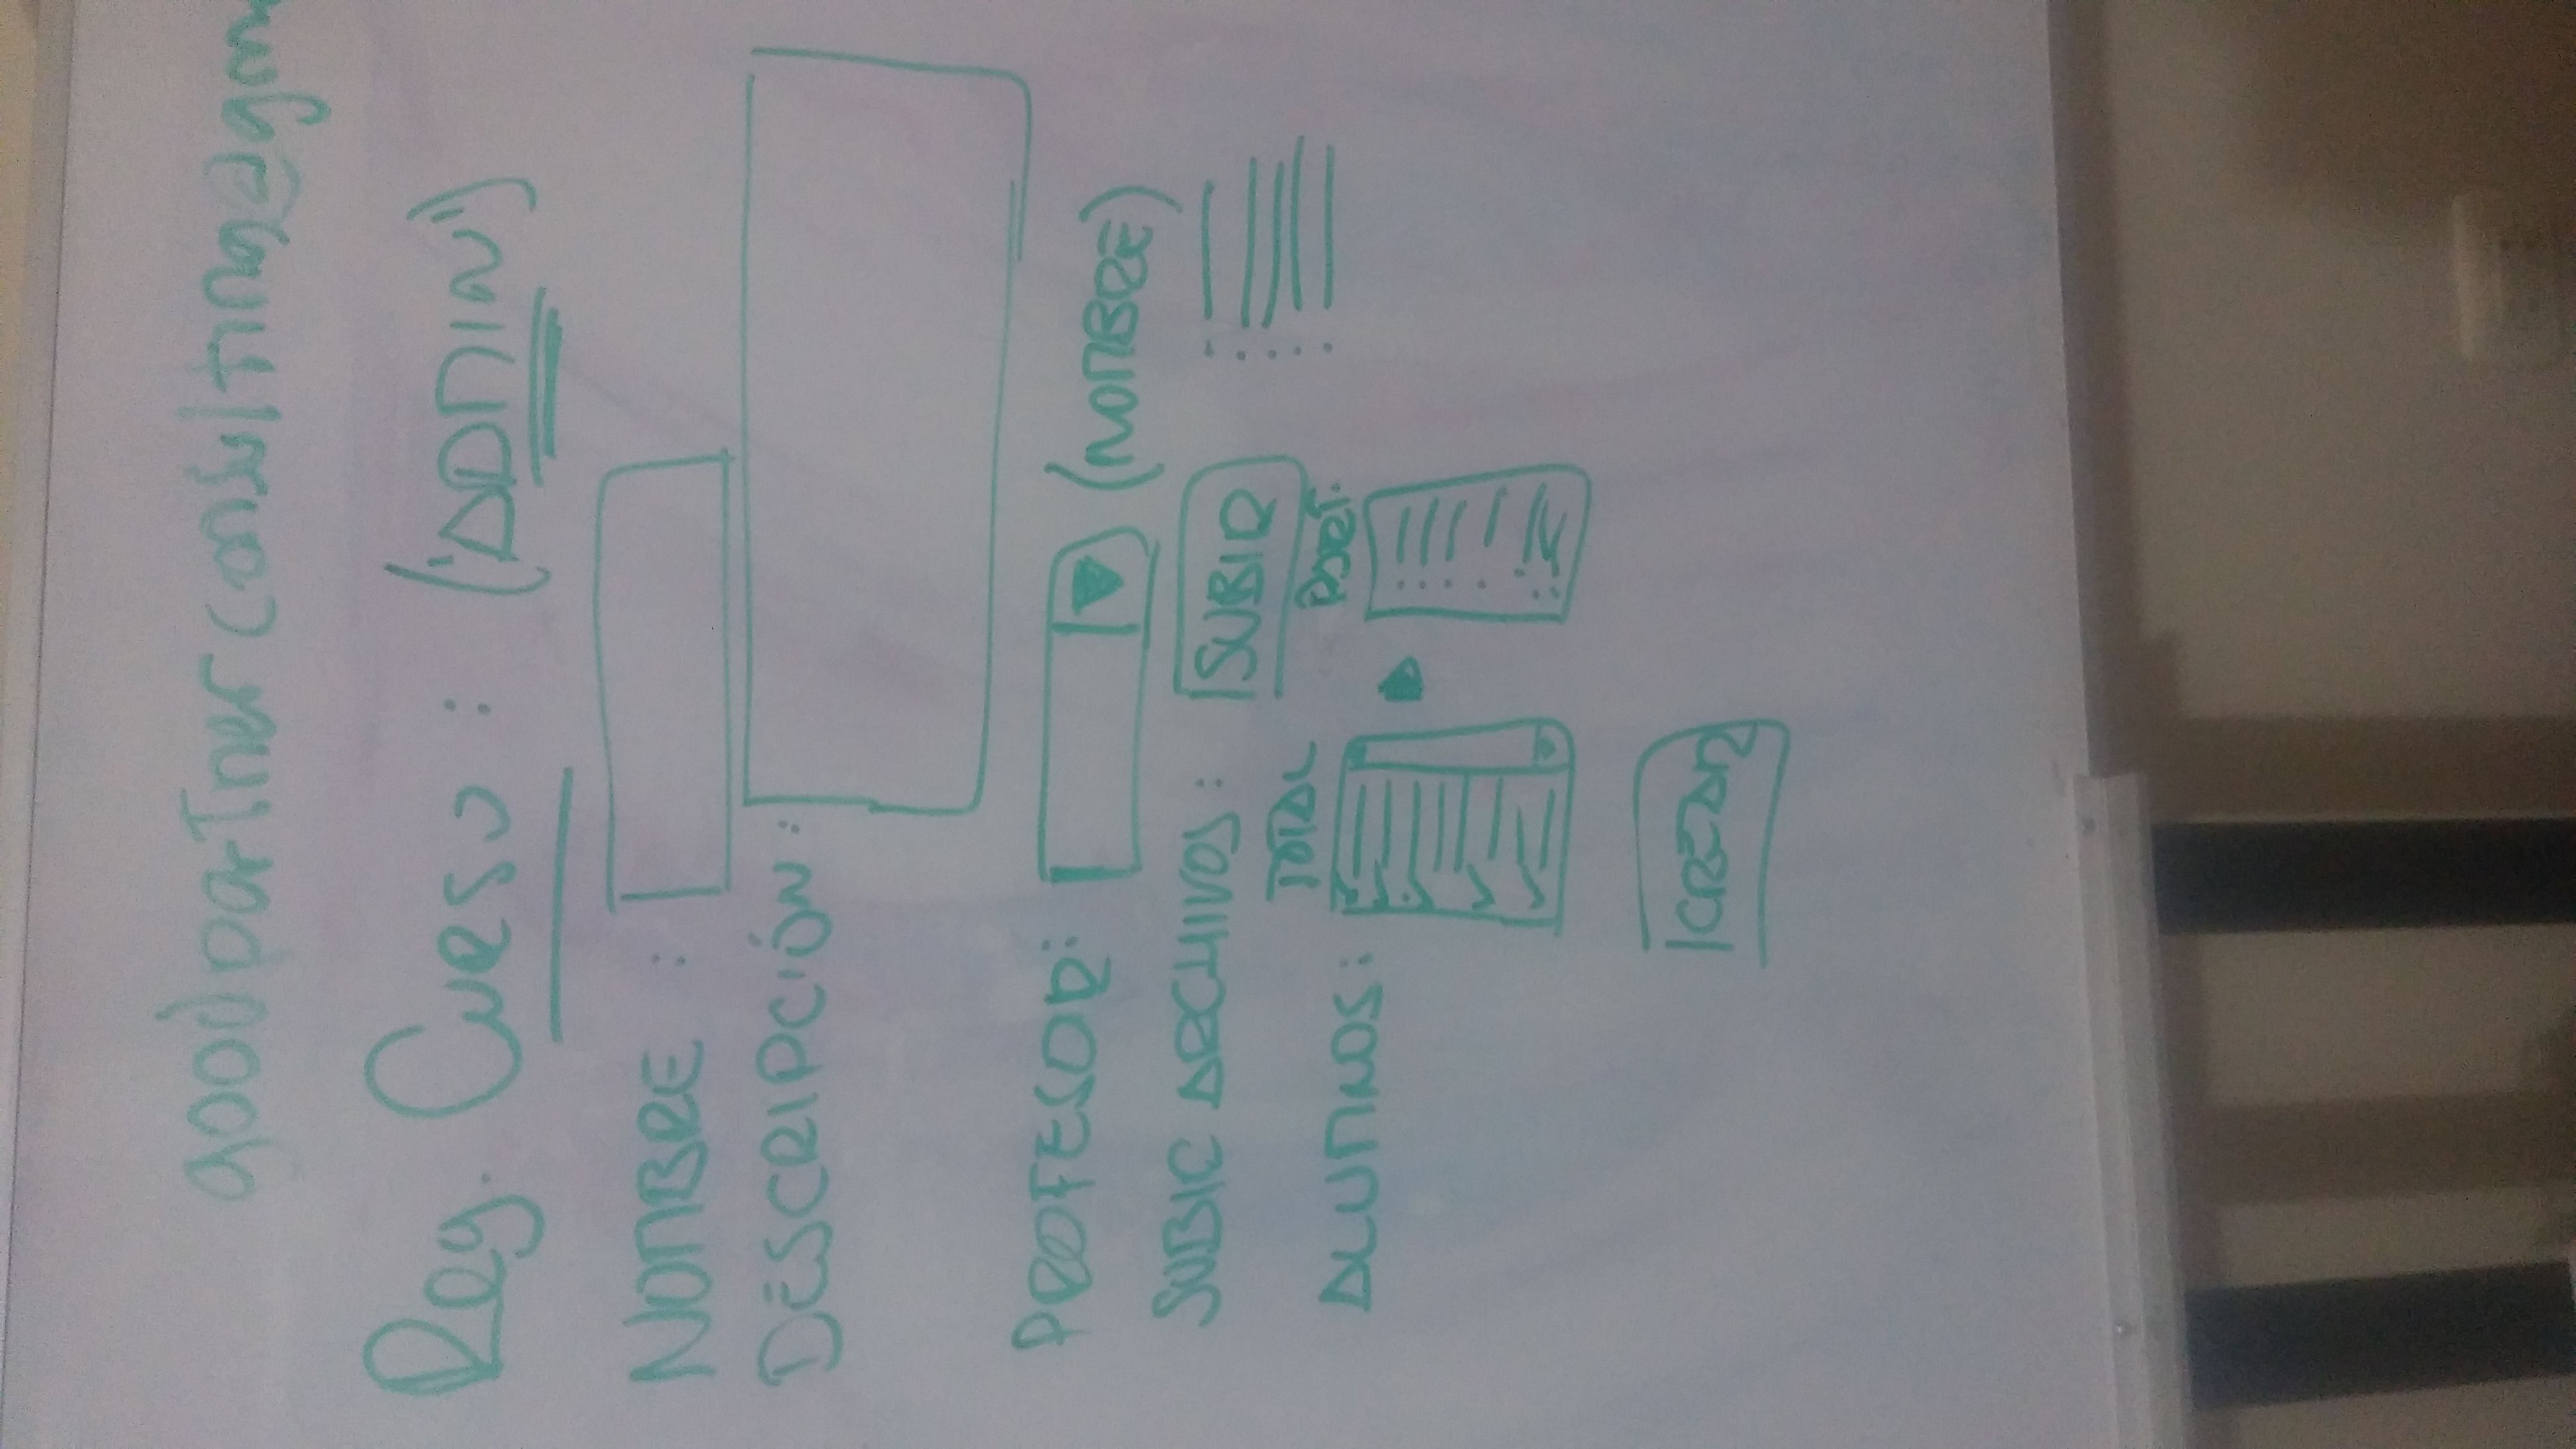 goodpartnerconsulting@gm
Reg. Curso : ("ADMIN")
NOMBRE :
DESCRIPCIÓN :
PROFESOR: (NOMBRE)
SUBIR ARCHIVOS: SUBIR
TOTAL PART.
ALUMNOS:
CREAR